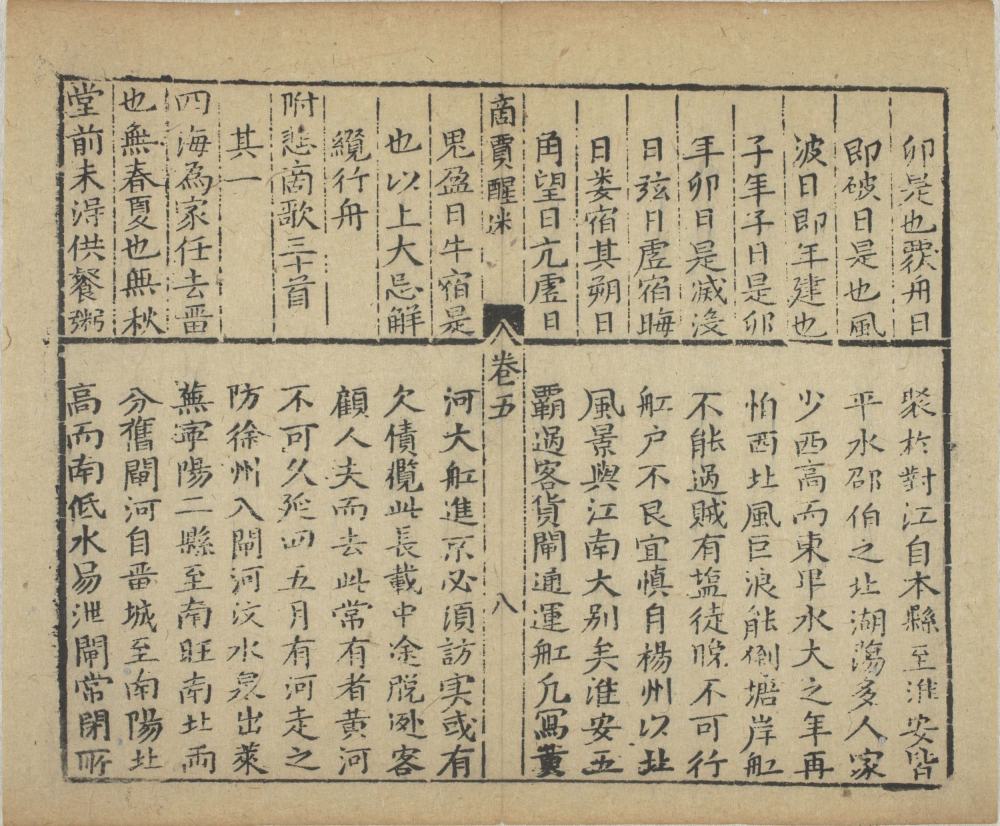 卯是也覆舟日
即破日是也風
波日即年建也
子年子日是卯
年卯日是滅没
日弦日虛宿晦
日娄宿其朔日
角望日亢虛日
商賈醒迷
鬼盈日牛宿是
也以上大忌解
纜行舟
附悲商歌三十首
其一
四海為家任去畱
也無春夏也無秋
堂前未淂供餐粥
聚於對江自本縣至淮安皆
平水邵伯之北湖蕩多人家
少西高而東卑水大之年再
怕西北風巨浪能倒塘岸舡
不能過賊有塩徒晚不可行
舡户不良宜慎自楊州以北
風景與江南大别矣淮安五
覇過客貨閘通運舡凢寫黄
卷五 八
河大舡進京必須訪実或有
欠債攬此長載中途脱逃客
顧人夫而去此常有者黄河
不可久延四五月有河走之
防徐州入閘河汶水泉出萊
蕪寧陽二縣至南旺南北両
分舊閘河自畱城至南陽北
高而南低水易泄閘常閉所